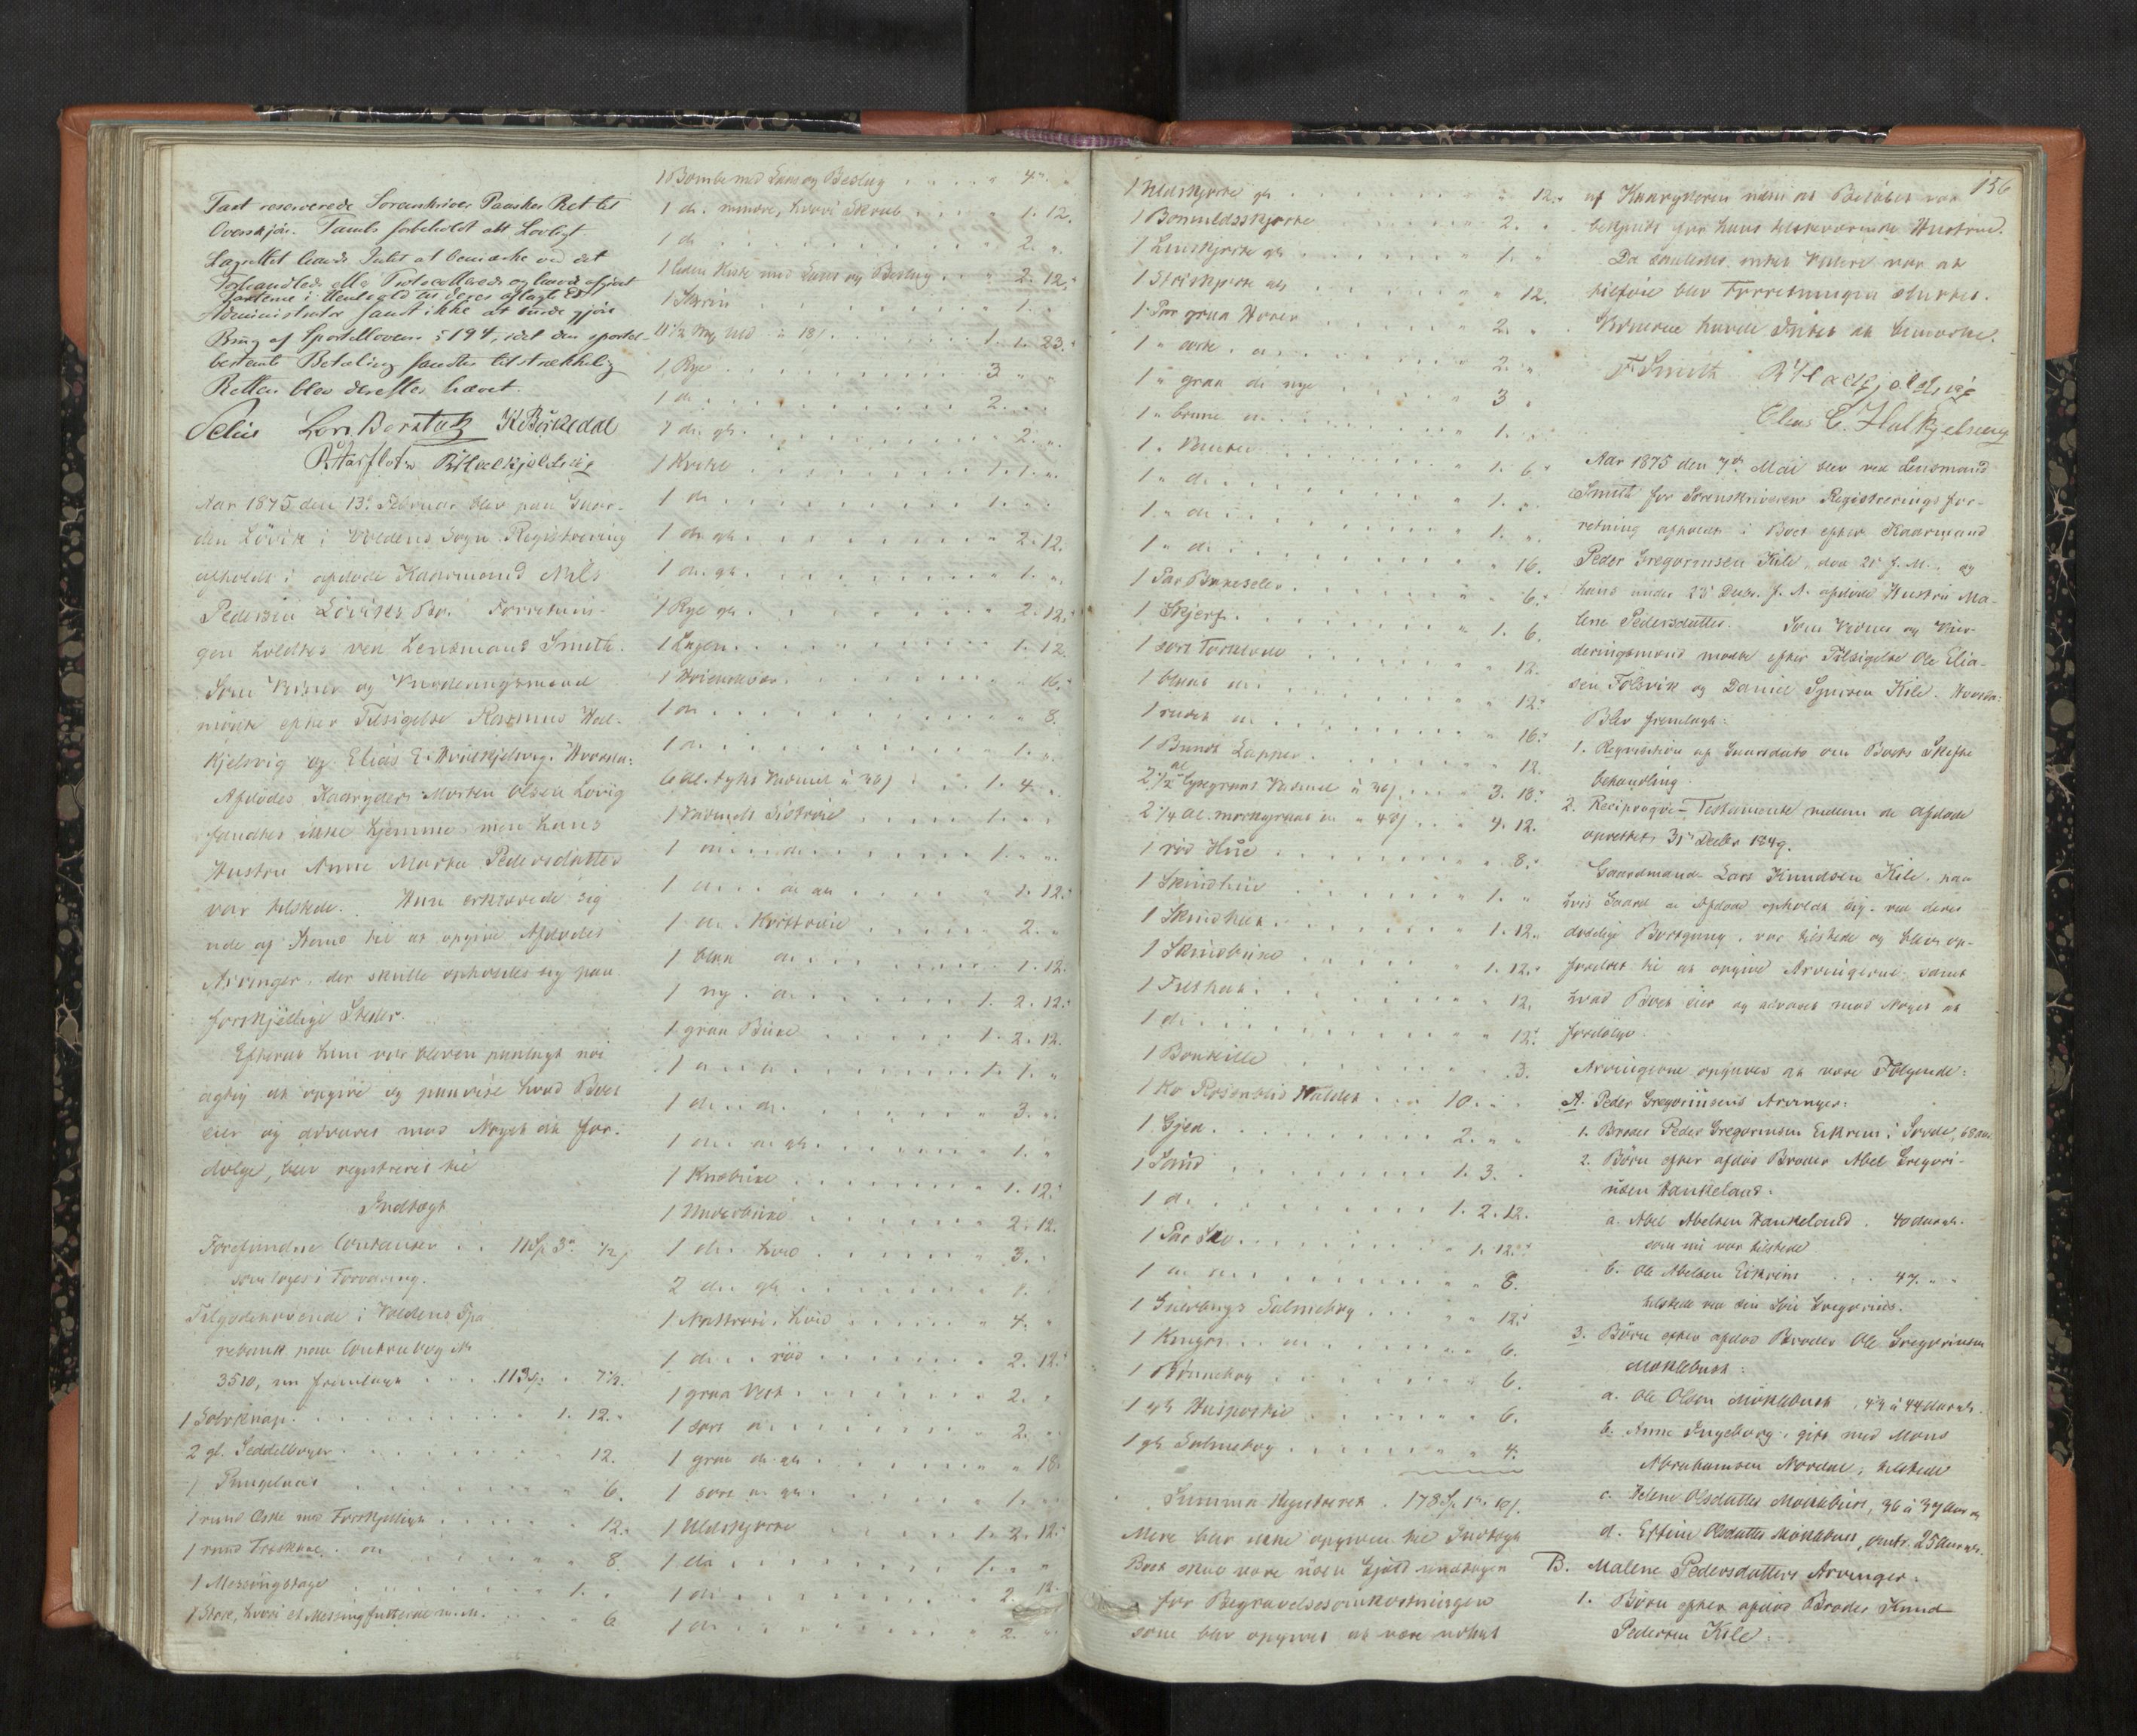 Taxt reserverede Sorenskriver Paasker Ret til
Overskjøn. Taarnls forbeholdt alt Lovligt
Lagrettet havde Intet at bemærke ved det
Forhandlede eller Protocollerede og havde afgivet
Skjønnet i Henhold til deres aflagte Ed
Administrator fandt ikke at burde gjøre
Brug af Sportelloven § 194, idet den sportel-
bestemte Betaling fandtes tilstrækkelig
Retten blev derefter hævet.
Aar 1875 den 13de Februar blev paa Gaar-
den Lövik i Voldens Sogn Registrering
afholdt i afdøde Kaarmand Nils
Pedersen Löviks Bo. Forretnin-
gen holdtes ved Lensmand Smith.
Som Vidner og Vurderingsmænd
mødte efter Tilsigelse Rasmus Hal-
kjelsvig og Elias E. Halkjelsvig. Hvorda:
Afdødes Kaaryder Morten Olsen Lövig
fandtes ikke hjemme, men hans
Hustru Anne Marta Pedersdatter
var tilstede. Hun erklærede sig
ude af Stand til at opgive Afdødes
Arvinger, der skulle opholde sig paa
forskjellige Steder.
Efterat hun var bleven paalagt nöi
agtig at opgive og paavise hvad Boet
eier og advaret mod Noget at for-
dølge, blev registreret til
Indtægt
Forefundne Contanter . . 11 Sp 3 " ½ s
som toges i Forvaring.
Tilgodehavende i Voldens Spa
rebank paa Contrabog No
3510, nu fremlagt . . . 113 Sp . 7½
1 Sølvknap . . . 1. 12.
2 gl. Seddelbøger . . . 12.
1 Pungelaas . . . 6.
1 rund Æske med Forskjelligt . . . 12.
1 rund Træskaal . . . 8.
1 Messingstage . . . 1.
1 Stok, hvori et Messingfutteral m. M. . . . 6
1 Bombe med Laas og Beslag . . . 4 "
1 do. mindre, hvori Skrab . . . 1. 12.
1 do . . . 2. "
1 liden Kiste med Laas og Beslag . . . 2. 12.
1 Skrin . . . 1. "
4½ Mrk Uld à 18 s . . . 1. 1. 23.
1 Rye . . . 3 " "
1 do . . . 2. "
1 do. gl. . . . 2. "
1 do . . . 1. "
1 do gl. . . . 2. 12.
1 do. gl. . . . 1. "
1 Rye gl. . . . 2. 12.
1 Lagen . . . 1. 12.
1 do . . . 8.
1 do . . . 1. "
6 Al. tykt Vadmel à 36 s . . . 1. 4. "
1 Vadmels Sidtrøie . . . 1. "
1 do. Korttrøie . . . 2. "
1 blaa do . . . 1. 12.
1 ny do . . . 1. 2. 12.
1 graa Buxe . . . 1. 2. 12.
1 do. do. . . . 3. "
1 do. do. gl. . . . 1. "
1 Knæbuxe . . . 1. 12.
1 Underbuxe . . . 2. 12.
1 do. hvid . . . 3. "
2 do. gl. . . . 1. "
1 Nattrøie, hvid . . . 4. "
1 do. rød . . . 2. 12.
1 graa Vest . . . 2. "
1 sort do . . . 2. "
1 graa do. gl. . . . 18.
1 sort do gl. . . . 1. "
1 Uldskjorte . . . 1. 2. 12.
1 do . . . 1. "
1 do . . . 2. 12.
1 do . . . 2. "
1 Uldskjorte gl. . . . 12.
1 Bomuldsskjorte . . . 2. "
1 Linskjorte gl. . . . 1. "
1 Striskjorte gl. . . . 12.
1 Par graa Hoser . . . 2. "
1 " sorte do . . . 2. "
1 " graa do nye . . . 3 "
1 " brune do . . . 1. "
1 " Vanter . . . 1. 6
1 " do . . . 1. "
1 " do . . . 1. "
1 " do . . . 16.
1 Par Buxeseler . . . 6.
1 Skjerf . . . 1. 6.
1 sort Tørklæde . . . 12.
1 blaat do . . . 12.
1 rudet do . . . 16.
1 Bundt Lapper . . . 12.
2½ al lysegraat Vadmel à 36 s . . . 3. 18.
2¼ al. mørkgraat do à 48 s . . . 4. 12.
1 rød Hue . . . 8.
1 Skindhue . . . 1. "
1 Skindhat . . . 1. 12.
1 Skindbuxe . . . 1. 12.
1 Filthat . . . 12.
1 do . . . 12.
1 Bouteille . . . 3.
1 Ko Rosenblis kaldet . . . 10. "
1 Gjed . . . 2. " "
1 Soud . . . 1. 3. "
1 do . . . 1. 2. 12.
1 Par Sko . . . 1. 12.
1 do do . . . 8.
1 Guldbergs Salmebog . . . 12.
1 Kingos do . . . 6.
1 Bønnebog . . . 6.
1 gl. Huspostil . . . 6.
1 gl. Salmebog . . . 4.
Summa Registreret . 178 Sp 1 " 10 s.
Mere blev ikke opgiven til Indtægt
Boet skal være uden Gjæld undtagen
for Begravelsesomkostningen
som blev opgivet at være udlagt
156
af Kaaryderen uden at Beløbet var
bekjendt for hans tilstedeværende Hustru.
Da saaledes intet videre var at
tilføie blev Forretningen sluttet.
Vidnerne havde Intet at bemærke.
F. Smith R Halkjelsvig
Elias E. Halkjelsvig
Aar 1875 den 7de Mai blev ved Lensmand
Smith for Sorenskriveren Registreringsfor-
retning afholdt i Boet efter Kaarmand
Peder Gregoriussen Kile, død 21 f. M., og
hans under 23 Decbr. f. A. afdøde Hustru Ma-
lene Pedersdatter. Som Vidner og Vur-
deringsmænd mødte efter Tilsigelse Ole Elia-
sen Fölsvik og Daniel Synesen Kile. Hvorda:
Blev fremlagt:
1. Reqvisition af Gaarsdato om Boets Skifte
behandling.
2. Reciproqve-Testamente mellem de Afdøde
oprettet 31te Decbr 1849.
Gaardmand Lars Knudsen Kile, paa
hvis Gaard de Afdøde opholdt sig ved deres
dødelige Bortgang, var tilstede og blev op-
fordret til at opgive Arvingerne samt
hvad Boet eier og advaret mod Noget at
fordølge.
Arvingerne opgaves at være Følgende:
A. Peder Gregoriussens Arvinger:
1. Broder Peder Gregoriussen Eikrem i Sovde, 68 Aar
2. Børn efter afdød Broder Abel Gregori-
ussen Hankeland:
a. Abel Abelsen Hankeland . 40 Aar gl.
som nu var tilstede
b. Ole Abelsen Eikrem . . . 47. " "
tilstede ved sin Søn Gregorius.
3. Børn efter afdød Broder Ole Gregoriussen
Møklebust:
a. Ole Olsen Møklebust . 43 à 44 Aar gl.
b. Anne Ingeborg, gift med Mons
Abrahamsen Nordal, tilstede
c. Helene Olsdatter Møklebust, 36 à 37 Aar gl
d. Effine Olsdatter Møklebust, omtr. 25 Aar gl.
B. Malene Pedersdatters Arvinger:
1. Børn efter afdød Broder Knud
Pedersen Kile: